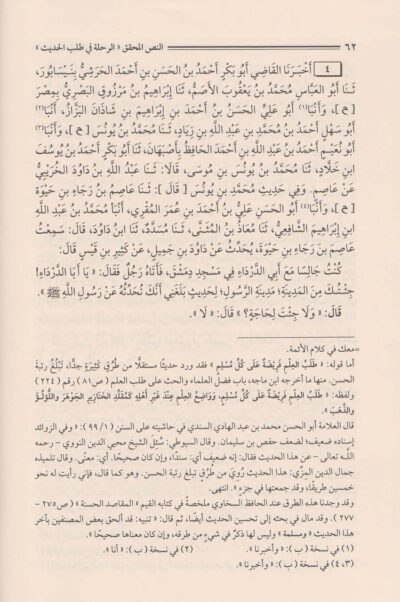 ٦٢ النص المحقق « الرحلة في طلب الحديث »
٤ أَخْبَرَنَا القَاضِي أَبُو بَكْرٍ أَحْمَدُ بْنُ الحَسَنِ بنِ أَحْمَدَ الحَرَشِيُّ بِنَيْسَابُورَ،
ثَنَا أَبُو العَبَّاسِ مُحَمَّدُ بنُ يَعْقُوبَ الأَصَمُّ، ثَنَا إِبْرَاهِيمُ بنُ مَرْزُوقٍ البَصْرِيُّ بِمِصْرَ
[ح]، وَأَنْبَا(١) أَبُو عَلِيٍّ الحَسَنُ بْنُ أَحْمَدَ بنِ إِبْرَاهِيمَ بنِ شَاذَانَ البَزَّازُ، أَنْبَا(٢)
أَبُو سَهْلٍ أَحْمَدُ بنُ مُحَمَّدِ بنِ عَبْدِ اللَّهِ بنِ زِيَادٍ، ثَنَا مُحَمَّدُ بنُ يُونُسَ [ح]، وَأَنْبَا(٣)
أَبُو نُعَيْمٍ أَحْمَدُ بنُ عَبْدِ اللَّهِ بنِ أَحْمَدَ الحَافِظُ بِأَصْبَهَانَ، ثَنَا أَبُو بَكْرٍ أَحْمَدُ بنُ يُوسُفَ
ابنِ خَلَّادٍ، ثَنَا مُحَمَّدُ بنُ يُونُسَ بنِ مُوسَى، قَالَا: ثَنَا عَبْدُ اللَّهِ بنُ دَاوُدَ الخُرَيْبِيُّ
عَنْ عَاصِمٍ. وَفِي حَدِيثِ مُحَمَّدِ بنِ يُونُسَ [قَالَ]: ثَنَا عَاصِمُ بنُ رَجَاءِ بنِ حَيْوَةَ
[ح]، وَأَنْبَا(٤) أَبُو الحَسَنِ عَلِيُّ بنُ أَحْمَدَ بنِ عُمَرَ المُقْرِي، أَنْبَأَ مُحَمَّدُ بنُ عَبْدِ اللَّهِ
ابنِ إِبْرَاهِيمَ الشَّافِعِيُّ، ثَنَا مُعَاذُ بنُ المُثَنَّى، ثَنَا مُسَدَّدٌ، ثَنَا ابنُ دَاوُدَ، قَالَ: سَمِعْتُ
عَاصِمَ بنَ رَجَاءِ بنِ حَيْوَةَ، يُحَدِّثُ عَنْ دَاوُدَ بنِ جَمِيلٍ، عَنْ كَثِيرِ بنِ قَيْسٍ قَالَ:
كُنْتُ جَالِسًا مَعَ أَبِي الدَّرْدَاءِ فِي مَسْجِدِ دِمَشْقَ، فَأَتَاهُ رَجُلٌ فَقَالَ: « يَا أَبَا الدَّرْدَاءِ!
جِئْتُكَ مِنَ المَدِينَةِ؛ مَدِينَةِ الرَّسُولِ؛ لِحَدِيثٍ بَلَغَنِي أَنَّكَ تُحَدِّثُهُ عَنْ رَسُولِ اللَّهِ ﷺ ».
قَالَ: « وَلَا جِئْتَ لِحَاجَةٍ؟ » قَالَ: « لَا ».
=معك في كلام الأئمة.
أما قوله: « طَلَبُ العِلْمِ فَرِيضَةٌ عَلَى كُلِّ مُسْلِمٍ » فقد ورد حديثًا مستقلًا من طُرُقٍ كثيرَةٍ جدًّا، تَبْلُغُ رتبةَ
الحسن. منها ما أخرجه ابن ماجه، باب فضل العلماء والحث على طلب العلم (ص٨١) رقم (٢٢٤)
ولفظه: « طَلَبُ العِلْمِ فَرِيضَةٌ عَلَى كُلِّ مُسْلِمٍ، وَوَاضِعُ العِلْمِ عِنْدَ غَيْرِ أَهْلِهِ كَمُقَلِّدِ الخَنَازِيرِ الجَوْهَرَ وَاللُّؤْلُؤَ
وَالذَّهَبَ ».
قال العلامة أبو الحسن محمد بن عبد الهادي السندي في حاشيته على السنن (١/ ٩٩): « وفي الزوائد
إسناده ضعيف؛ لضعف حفص بن سليمان. وقال السيوطي: سُئل الشيخ محيي الدين النووي - رحمه
اللَّه تعالى - عن هذا الحديث فقال: إنه ضعيف أي: سندًا، وإن كان صحيحًا. أي: معنًى. وقال تلميذه
جمال الدين المِزِّي: هذا الحديث رُوِيَ من طُرُقٍ تبلغ رتبة الحسن. وهو كما قال، فإني رأيت له نحو
خمسين طريقًا، وقد جمعتها في جزء ». انتهى.
وقد وجدنا هذه الطرق عند الحافظ السخاوي ملخصةً في كتابه القيم « المقاصد الحسنة » (ص٢٧٥ -
٢٧٧). وقد مال في بحثه إلى تحسين الحديث أيضًا، ثم قال: « تنبيه: قد ألحق بعض المصنفين بآخر
هذا الحديث « ومسلمة » وليس لها ذكرٌ في شيءٍ من طرقه، وإن كان معناها صحيحًا ».
(١) في نسخة (ب): « وأخبرنا ». (٢) في نسخة (ب): « أنا ».
(٣، ٤) في نسخة (ب): « وأخبرنا ».